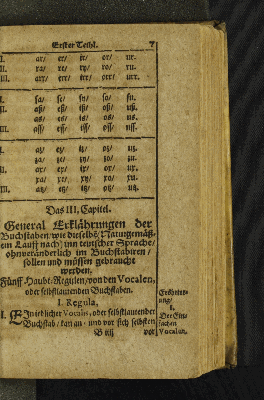 Erster Theil. 7
I. ar/ er/ ir/ or/ ur.
II. ra/ re/ ry/ ro/ ru.
III. arr/ err/ irr/ orr/ urr.
I. sa/ se/ sy/ so/ su.
II. aß/ eß/ iß/ oß/ uß.
as/ es/ is/ os/ us.
III. ass/ ess/ iss/ oss/ uss.
I. az/ ez/ iz/ oz/ uz.
za/ ze/ zy/ zo/ zu.
II. ax/ ex/ ix/ ox/ ux.
xa/ xe/ xy/ xo/ xu.
III. atz/ etz/ itz/ otz/ utz.
Das III. Capitel.
General Erklährungen der
Buchstaben/ wie dieselbe/ Naturgemäß-
em Lauff nach/ inn teutscher Sprache/
ohnveränderlich im Buchstabiren/
sollen und müssen gebraucht
werden.
Fünff Haubt-Regulen/ von den Vocalen,
oder selbstlautenden Buchstaben.
I. Regula.
I. EIn iedlicher Vocalis, oder selbstlautender
Buchstab/ kan an- und vor sich selbsten
B iiij vor
I.
Der Ein-
fachen
Vocalen.